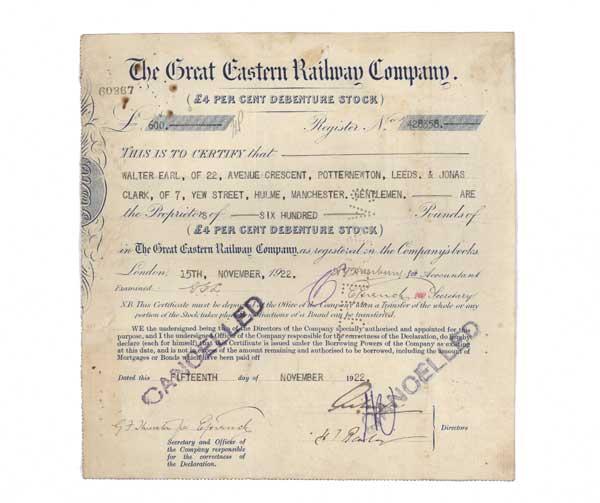 The Great Eastern Railway Company.
60367
(£4 PER CENT DEBENTURE STOCK)
£ 600. Register No 428358.
THIS IS TO CERTIFY that
WALTER EARL, OF 22, AVENUE CRESCENT, POTTERNEWTON, LEEDS. & JONAS
CLARK, OF 7, YEW STREET, HULME, MANCHESTER. GENTLEMEN. ARE
the Proprietors of SIX HUNDRED Pounds of
(£4 PER CENT DEBENTURE STOCK)
in The Great Eastern Railway Company, as registered in the Company's books
London: 15TH, NOVEMBER, 1922. for Accountant
Examined. Secretary
N.B. This Certificate must be deposited at the Office of the Company when a Transfer of the whole or any
portion of the Stock takes place. No fractions of a Pound can be transferred.
WE the undersigned being two of the Directors of the Company specially authorised and appointed for the
purpose, and I the undersigned Officer of the Company responsible for the correctness of the Declaration, do hereby
declare (each for himself) that this Certificate is issued under the Borrowing Powers of the Company as existing
at this date, and is not in excess of the amount remaining and authorised to be borrowed, including the amount of
Mortgages or Bonds which have been paid off
CANCELLED
CANCELLED
Dated this FIFTEENTH day of NOVEMBER 1922.
Directors
Secretary and Officer of
the Company responsible
for the correctness of
the Declaration.